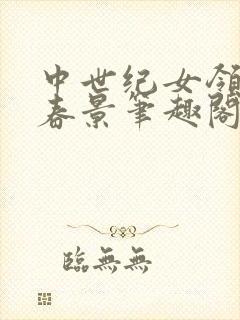 中世纪女领
春景筆趣閣
臨無無